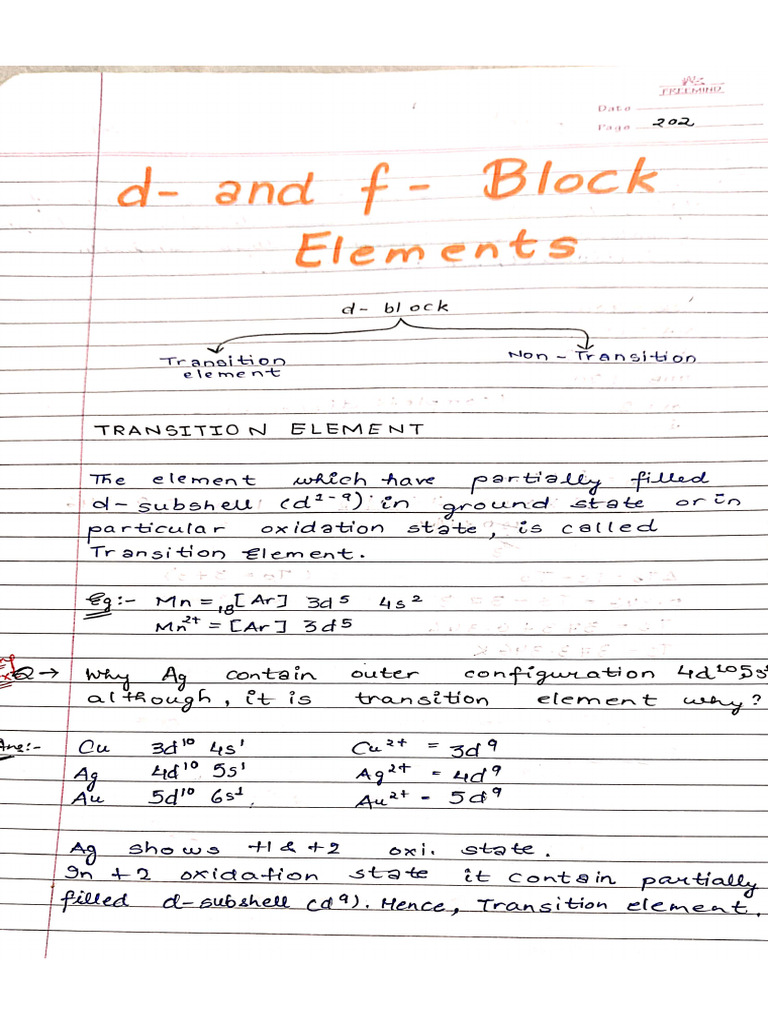 FREEMIND
Date
Page 202
d- and f- Block
Elements
d- block
Transition element
Non-Transition
TRANSITION ELEMENT
The element which have partially filled
d-subshell (d¹⁻⁹) in ground state or in
particular oxidation state, is called
Transition Element.
Eg:- Mn = ₁₈[Ar] 3d⁵ 4s²
Mn²⁺ = [Ar] 3d⁵
Q→ Why Ag contain outer configuration 4d¹⁰5s¹
although, it is transition element why?
Ans:- Cu 3d¹⁰ 4s¹ Cu²⁺ = 3d⁹
Ag 4d¹⁰ 5s¹ Ag²⁺ = 4d⁹
Au 5d¹⁰ 6s¹. Au²⁺ - 5d⁹
Ag shows +1 & +2 oxi. state.
In +2 oxidation state it contain partially
filled d-subshell (d⁹). Hence, Transition element.